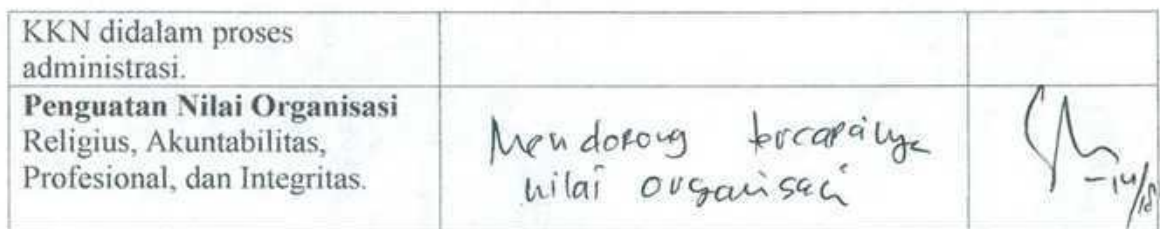 KKN didalam proses
administrasi.
Penguatan Nilai Organisasi
Religius, Akuntabilitas,
Profesional, dan Integritas.
Mendorong tercapainya
nilai organisasi